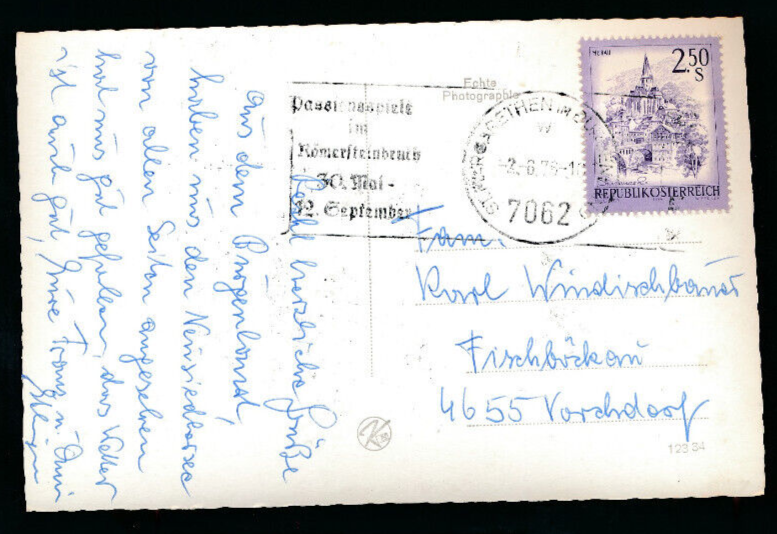 Recht herzliche Grüße
aus dem Burgenland,
haben uns den Neusiedlersee
von allen Seiten angesehen
hat uns gut gefallen, das Wetter
ist auch gut, Eure Franz u.
Echte
Photographie
Passionsspiele
im
Römersteinbruch
30. Mai -
12. September
ST. MARGARETHEN IM
7062
2.50
S
REPUBLIK ÖSTERREICH
Fam.
Karl Windischbauer
Fischböckau
4655 Vorchdorf
K
123 34